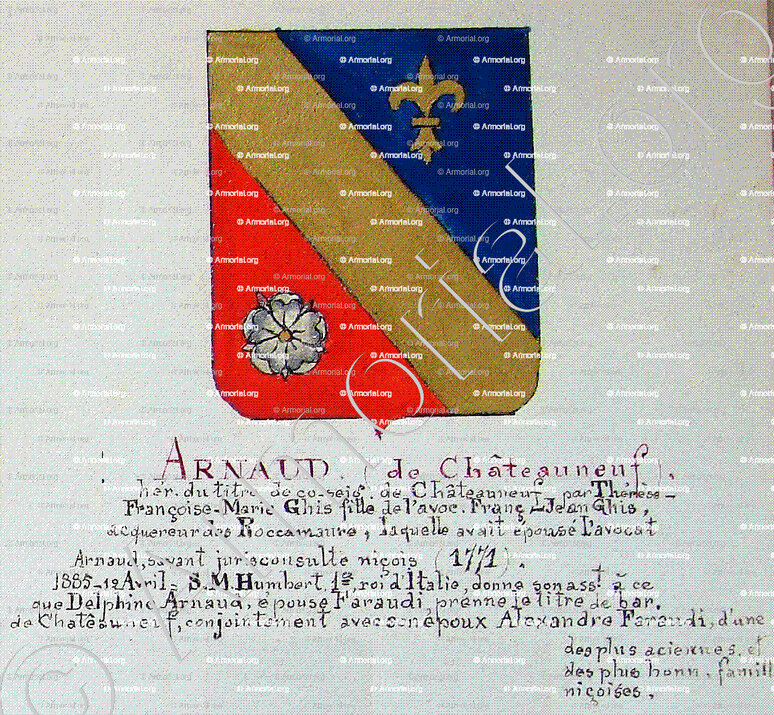 ARNAUD. (de Châteauneuf).
hér. du titre de co-seig. de Châteauneuf par Thérèse-
Françoise-Marie Ghis fille de l'avoc. Franç-Jean Ghis,
acquereur des Roccamaure, laquelle avait épousé l'avocat
Arnaud, savant jurisconsulte niçois (1771).
1885-12 Avril- S.M. Humbert 1er, roi d'Italie, donne son asst à ce
que Delphine Arnaud, épouse Faraudi, prenne le titre de bar.
de Châteauneuf, conjointement avec son époux Alexandre Faraudi, d'une
des plus aciennes, et
des plus honn. famill
niçoises,
© Armorial.org